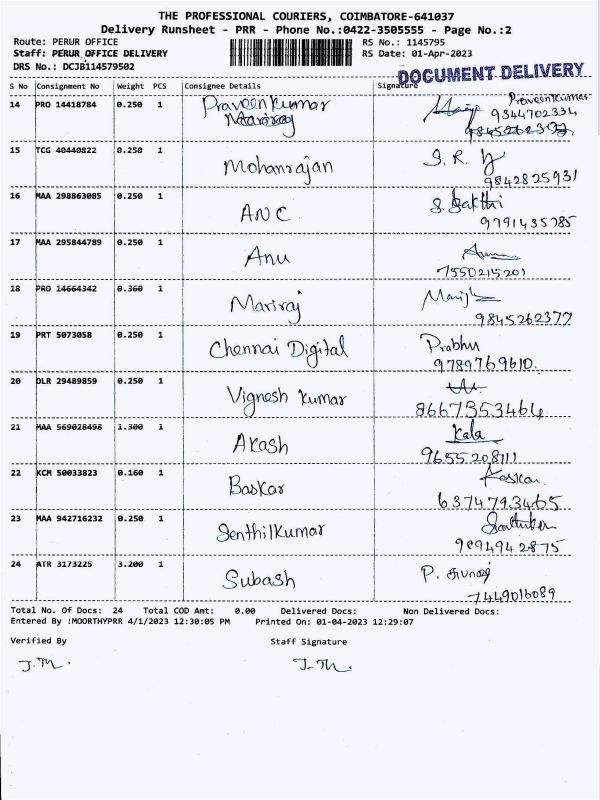 THE PROFESSIONAL COURIERS, COIMBATORE-641037
Delivery Runsheet - PRR - Phone No.:0422-3505555 - Page No.:2
Route: PERUR OFFICE RS No.: 1145795
Staff: PERUR OFFICE DELIVERY RS Date: 01-Apr-2023
DRS No.: DCJB114579502
DOCUMENT DELIVERY
S No Consignment No Weight PCS Consignee Details Signature
14 PRO 14418784 0.250 1 Praveenkumar Praveenkumar
Mariraj 9344702334
9845262377
15 TCG 40440822 0.250 1 Mohanrajan S. R.
9842825931
16 MAA 298863085 0.250 1 ANC S. Sakthi
9791435785
17 MAA 295844789 0.250 1 Anu
7550215201
18 PRO 14664342 0.360 1 Mariraj
9845262377
19 PRT 5073058 0.250 1 Chennai Digital Prabhu
9789769610.
20 DLR 29489859 0.250 1 Vignesh Kumar
8667353464
21 MAA 569028498 1.300 1 Akash Kala
9655208111
22 KCM 50033823 0.160 1 Baskar
6374793465
23 MAA 942716232 0.250 1 Senthilkumar
9894942875
24 ATR 3173225 3.200 1 Subash P.
7449016089
Total No. Of Docs: 24 Total COD Amt: 0.00 Delivered Docs: Non Delivered Docs:
Entered By :MOORTHYPRR 4/1/2023 12:30:05 PM Printed On: 01-04-2023 12:29:07
Verified By Staff Signature
J.M. J.M.